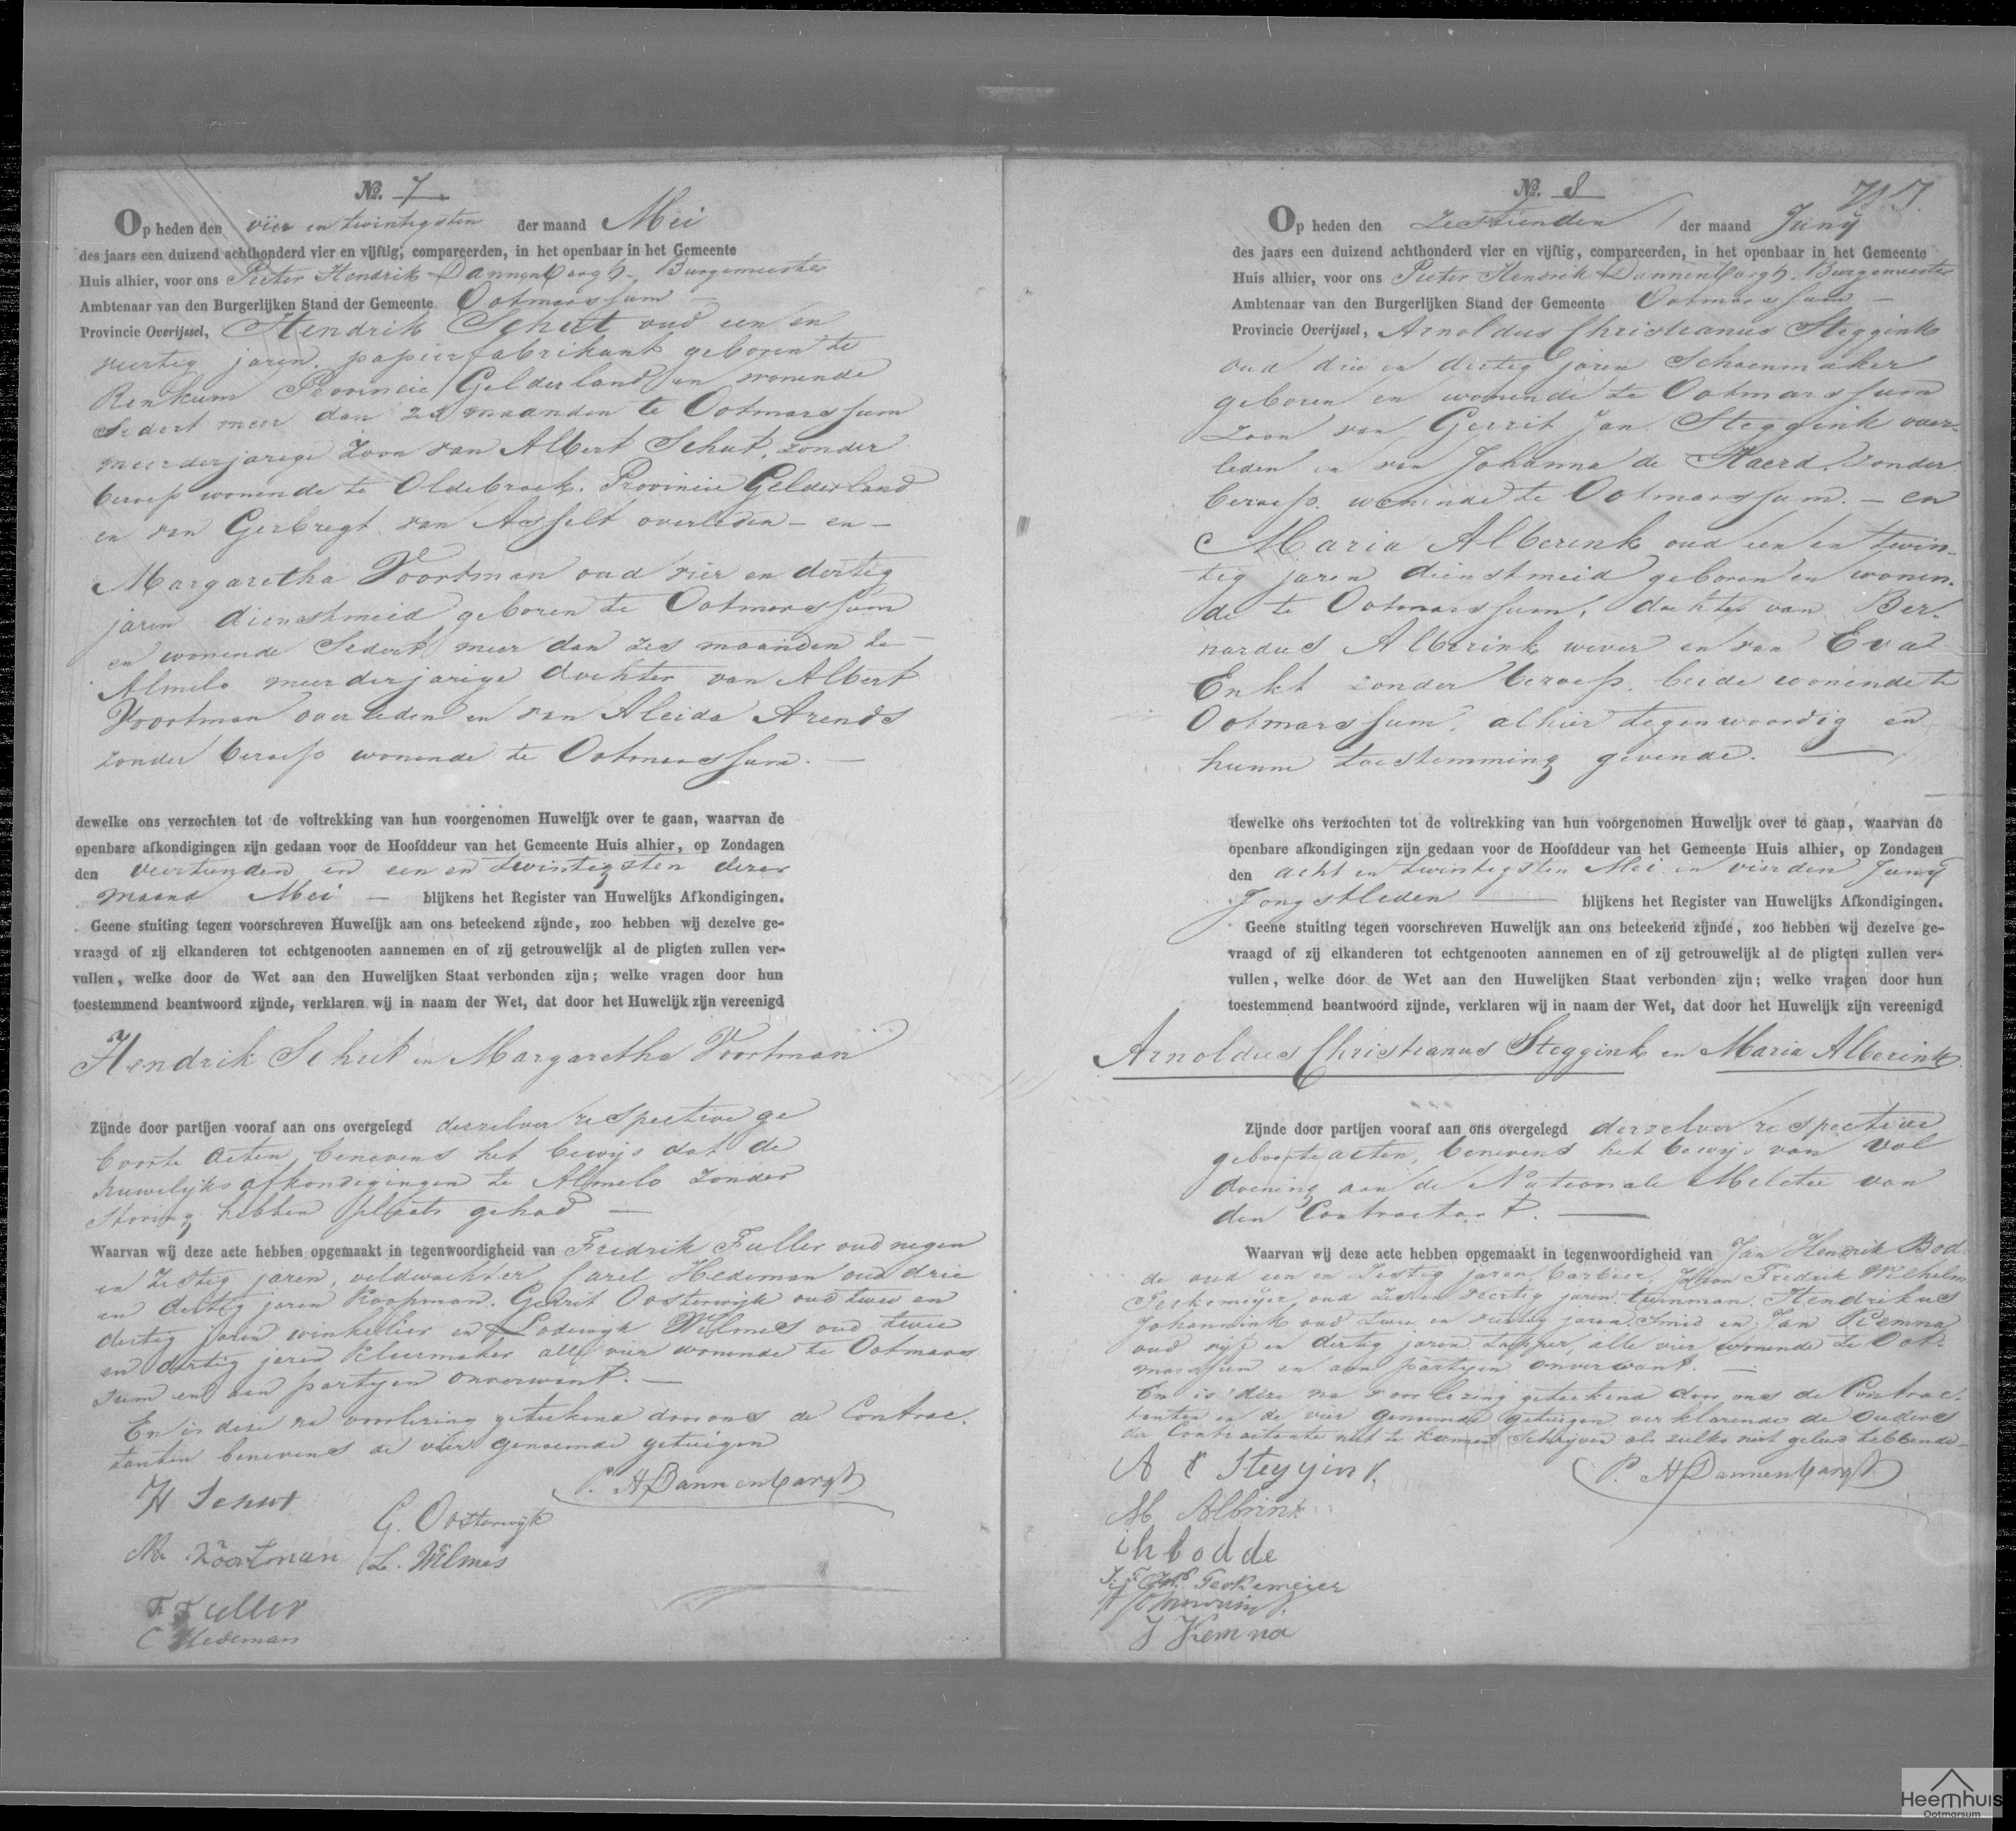 No. 7
Op heden den vier en twintigsten der maand Mei
des jaars een duizend achthonderd vier en vijftig, compareerden, in het openbaar in het Gemeente
Huis alhier, voor ons Pieter Hendrik Dannenbargh Burgemeester
Ambtenaar van den Burgerlijken Stand der Gemeente Ootmarssum
Provincie Overijssel, Hendrik Schut oud een en
veertig jaren, papierfabrikant geboren te
Renkum Provincie Gelderland en wonende
sedert meer dan zes maanden te Ootmarssum
meerderjarige zoon van Albert Schut, zonder
beroep wonende te Oldebroek, Provincie Gelderland
en van Gerbregt van Asselt overleden - en -
Margaretha Voortman oud vier en dertig
jaren dienstmeid geboren te Ootmarssum
en wonende sedert meer dan zes maanden te
Almelo meerderjarige dochter van Albert
Voortman overleden en van Aleida Arends
zonder beroep wonende te Ootmarssum. -
dewelke ons verzochten tot de voltrekking van hun voorgenomen Huwelijk over te gaan, waarvan de
openbare afkondigingen zijn gedaan voor de Hoofddeur van het Gemeente Huis alhier, op Zondagen
den veertienden en een en twintigsten dezer
maand Mei - blijkens het Register van Huwelijks Afkondigingen.
Geene stuiting tegen voorschreven Huwelijk aan ons beteekend zijnde, zoo hebben wij dezelve ge-
vraagd of zij elkanderen tot echtgenooten aannemen en of zij getrouwelijk al de pligten zullen ver-
vullen, welke door de Wet aan den Huwelijken Staat verbonden zijn; welke vragen door hun
toestemmend beantwoord zijnde, verklaren wij in naam der Wet, dat door het Huwelijk zijn vereenigd
Hendrik Schut en Margaretha Voortman
Zijnde door partijen vooraf aan ons overgelegd derzelver respective ge
boorte acten, benevens het bewijs dat de
huwelijks afkondigingen te Almelo zonder
storing hebben plaats gehad -
Waarvan wij deze acte hebben opgemaakt in tegenwoordigheid van Fredrik Fuller oud negen
en zestig jaren, veldwachter, Carel Hedeman oud drie
en dertig jaren Koopman, Gerrit Oosterwijk oud twee en
dertig jaren winkelier en Lodewijk Wilmes oud twee
en dertig jaren kleermaker alle vier wonende te Ootmars
sum en aan partijen onverwant. -
En is deze na voorlezing geteekend door ons de Contrac-
tanten benevens de vier genoemde getuigen
P. H Dannenbargh
H Schut
G. Oosterwijk
M Voortman
L. Wilmes
F Fuller
C Hedeman
No. 8
Op heden den zestienden der maand Junij
des jaars een duizend achthonderd vier en vijftig, compareerden, in het openbaar in het Gemeente
Huis alhier, voor ons Pieter Hendrik Dannenbargh, Burgemeester
Ambtenaar van den Burgerlijken Stand der Gemeente Ootmarssum -
Provincie Overijssel, Arnoldus Christianus Steggink
oud drie en dertig jaren Schoenmaker
geboren en wonende te Ootmarssum
zoon van Gerrit Jan Steggink over-
leden en van Johanna de Haerd, zonder
beroep wonende te Ootmarssum. - en
Maria Alberink oud een en twin-
tig jaren dienstmeid geboren en wonen-
de te Ootmarssum, dochter van Ber-
nardus Alberink wever en van Eva
Enkt zonder beroep, beide wonende te
Ootmarssum, alhier tegenwoordig en
hunne toestemming gevende. -
dewelke ons verzochten tot de voltrekking van hun voorgenomen Huwelijk over te gaan, waarvan de
openbare afkondigingen zijn gedaan voor de Hoofddeur van het Gemeente Huis alhier, op Zondagen
den acht en twintigsten Mei en vierden Junij
Jongstleden - blijkens het Register van Huwelijks Afkondigingen.
Geene stuiting tegen voorschreven Huwelijk aan ons beteekend zijnde, zoo hebben wij dezelve ge-
vraagd of zij elkanderen tot echtgenooten aannemen en of zij getrouwelijk al de pligten zullen ver-
vullen, welke door de Wet aan den Huwelijken Staat verbonden zijn; welke vragen door hun
toestemmend beantwoord zijnde, verklaren wij in naam der Wet, dat door het Huwelijk zijn vereenigd
Arnoldus Christianus Steggink en Maria Alberink
Zijnde door partijen vooraf aan ons overgelegd derzelver respective
geboorteacten, benevens het bewijs van vol
doening aan de Nationale Melitie van
den Contractant. -
Waarvan wij deze acte hebben opgemaakt in tegenwoordigheid van Jan Hendrik Bod
de oud een en zestig jaren, barbier, Johan Fredrik Wilhelm
Teskemeijer, oud zes en veertig jaren, tuinman, Hendrikus
Johannink oud twee en veertig jaren, smid en Jan Kemna
oud vijf en dertig jaren tapper, alle vier wonende te Oot-
marssum en aan partijen onverwant. -
En is deze na voorlezing geteekend door ons de Contrac-
tanten en de vier genoemde getuigen verklarende de ouders
der Contractante niet te kunnen schrijven als zulks niet geleerd hebbende -
A C Steggink
P. H Dannenbargh
M Albrink
ih bodde
Teskemeier
J Kemna
Heemhuis
Ootmarsum